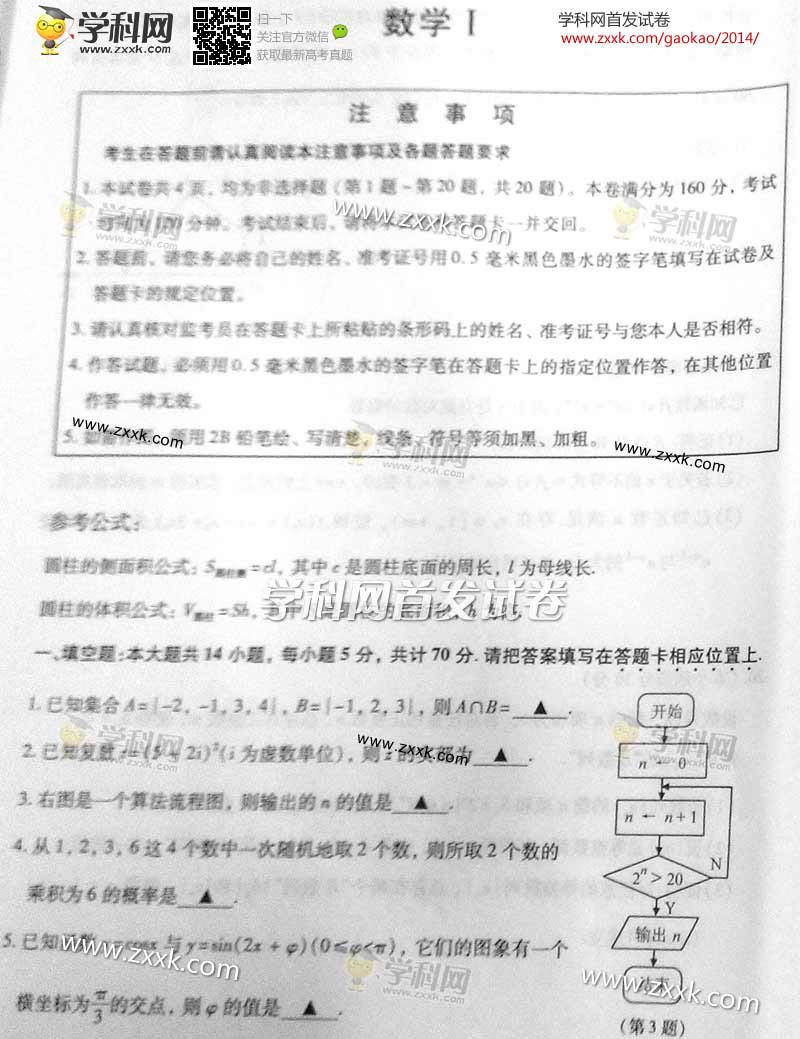 学科网
www.zxxk.com
扫一下
关注官方微信
获取最新高考真题
数学 I
学科网首发试卷
www.zxxk.com/gaokao/2014/
注 意 事 项
考生在答题前请认真阅读本注意事项及各题答题要求
1. 本试卷共 4 页, 均为非选择题 (第 1 题 ~ 第 20 题, 共 20 题)。本卷满分为 160 分, 考试
分钟。考试结束后, 请将 答题卡一并交回。
2. 答题前, 请您务必将自己的姓名、准考证号用 0.5 毫米黑色墨水的签字笔填写在试卷及
答题卡的规定位置。
3. 请认真核对监考员在答题卡上所粘贴的条形码上的姓名、准考证号与您本人是否相符。
4. 作答试题, 必须用 0.5 毫米黑色墨水的签字笔在答题卡上的指定位置作答, 在其他位置
作答一律无效。
5. 如需作图, 须用 2B 铅笔绘、写清楚, 线条、符号等须加黑、加粗。
参考公式:
圆柱的侧面积公式: S圆柱侧 = cl, 其中 c 是圆柱底面的周长, l 为母线长.
圆柱的体积公式: V圆柱 = Sh,
学科网首发试卷
一、填空题: 本大题共 14 小题, 每小题 5 分, 共计 70 分. 请把答案填写在答题卡相应位置上.
1. 已知集合 A = {-2, -1, 3, 4}, B = {-1, 2, 3}, 则 A∩B = ▲ .
2. 已知复数 (5 + 2i)² (i 为虚数单位), 则 z 的实部为 ▲ .
3. 右图是一个算法流程图, 则输出的 n 的值是 ▲ .
4. 从 1, 2, 3, 6 这 4 个数中一次随机地取 2 个数, 则所取 2 个数的
乘积为 6 的概率是 ▲ .
5. 已知函数 y = cosx 与 y = sin(2x + φ) (0 ≤ φ < π), 它们的图象有一个
横坐标为 π/3 的交点, 则 φ 的值是 ▲ .
开始
n ← 0
n ← n + 1
2ⁿ > 20
N
Y
输出 n
结束
(第 3 题)